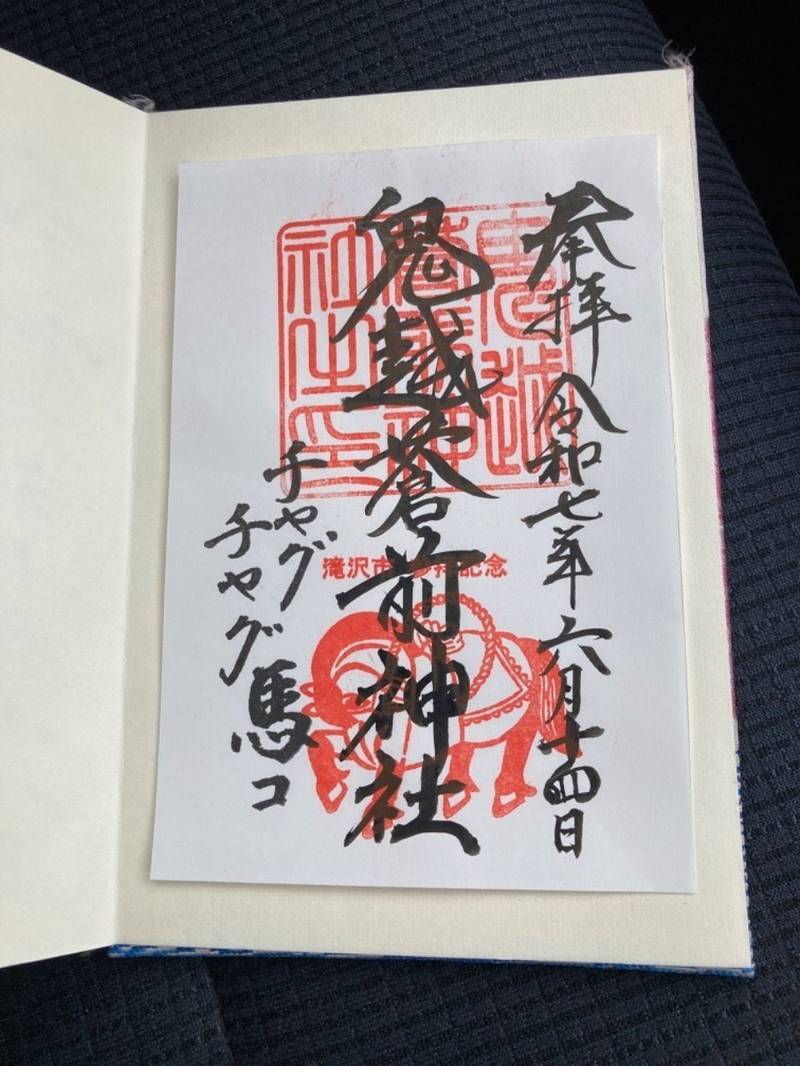 奉拝 令和七年六月十四日
鬼越蒼前神社
チャグ
チャグ馬コ
滝沢市 参拝記念